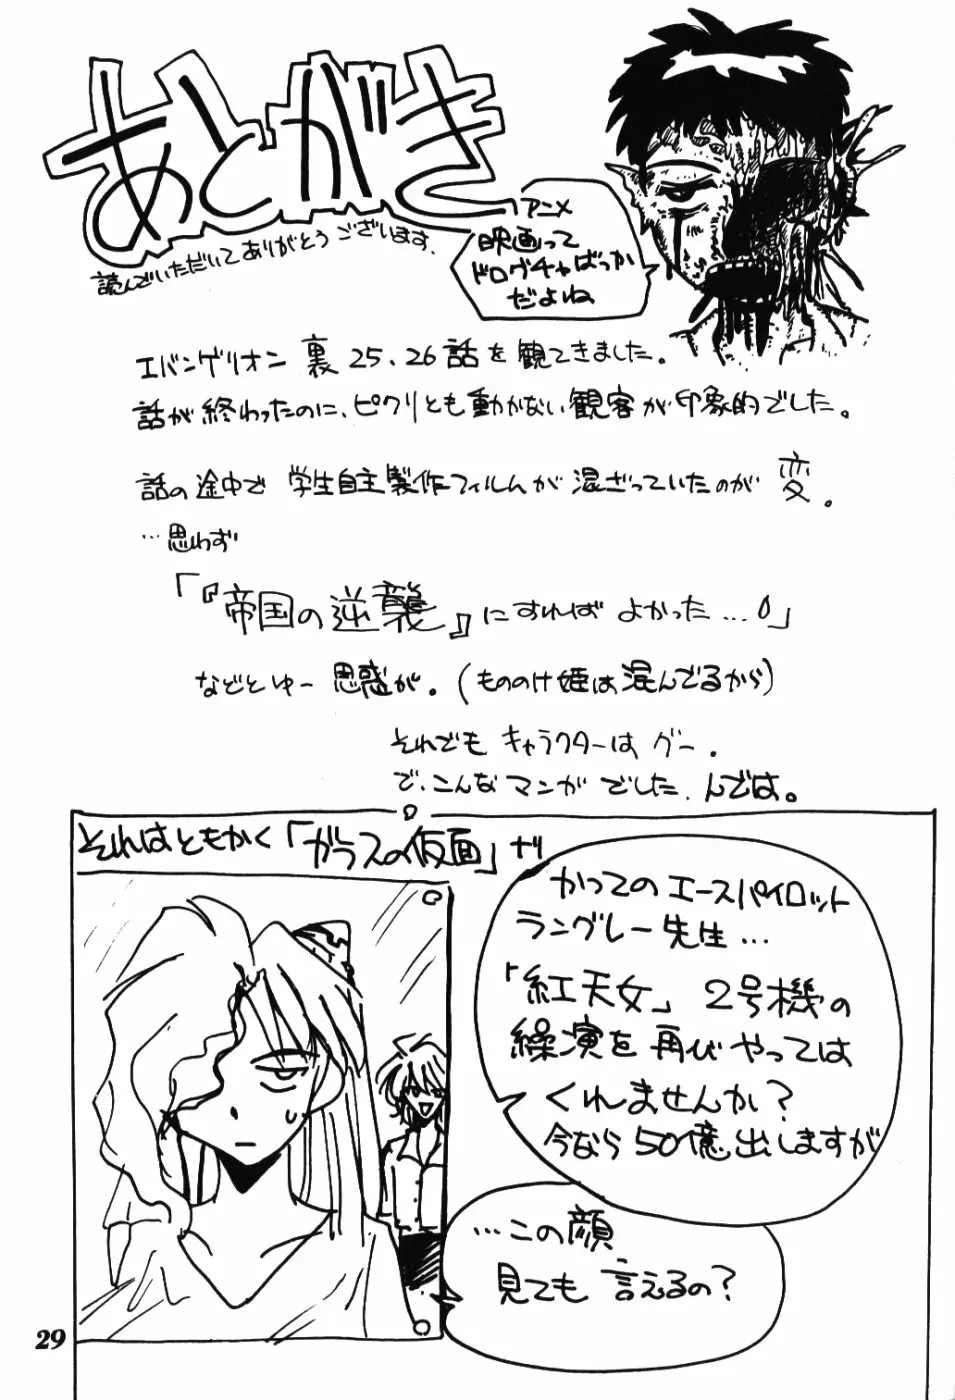 あとがき
読んでいただいてありがとうございます.
アニメ
映画って
ドログチャばっか
だよね
エバンゲリオン 裏 25、26話を観てきました。
話が終わったのに、ピクリとも動かない観客が印象的でした。
話の途中で 学生自主製作フィルムが混ざっていたのが 変。
…思わず
「『帝国の逆襲』にすればよかった…。」
などとゆー思惑が。(もののけ姫は混んでるから)
それでもキャラクターはグー.
で、こんなマンガでした.んでは。
それはともかく「ガラスの仮面」ナリ
かつてのエースパイロット
ラングレー先生…
「紅天女」2号機の
操演を再びやっては
くれませんか?
今なら50億出しますが
…この顔
見ても言えるの?
29